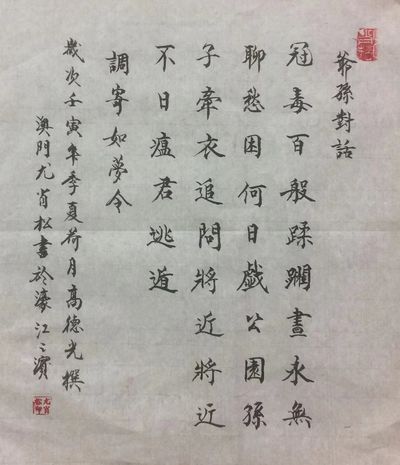 爺孫對話
冠毒百般蹂躪晝永無
聊愁困何日戲公園孫
子牽衣追問將近將近
不日瘟君逃遁
調寄如夢令
歲次壬寅年季夏荷月高德光撰
澳門尤肖松書於濠江之濱